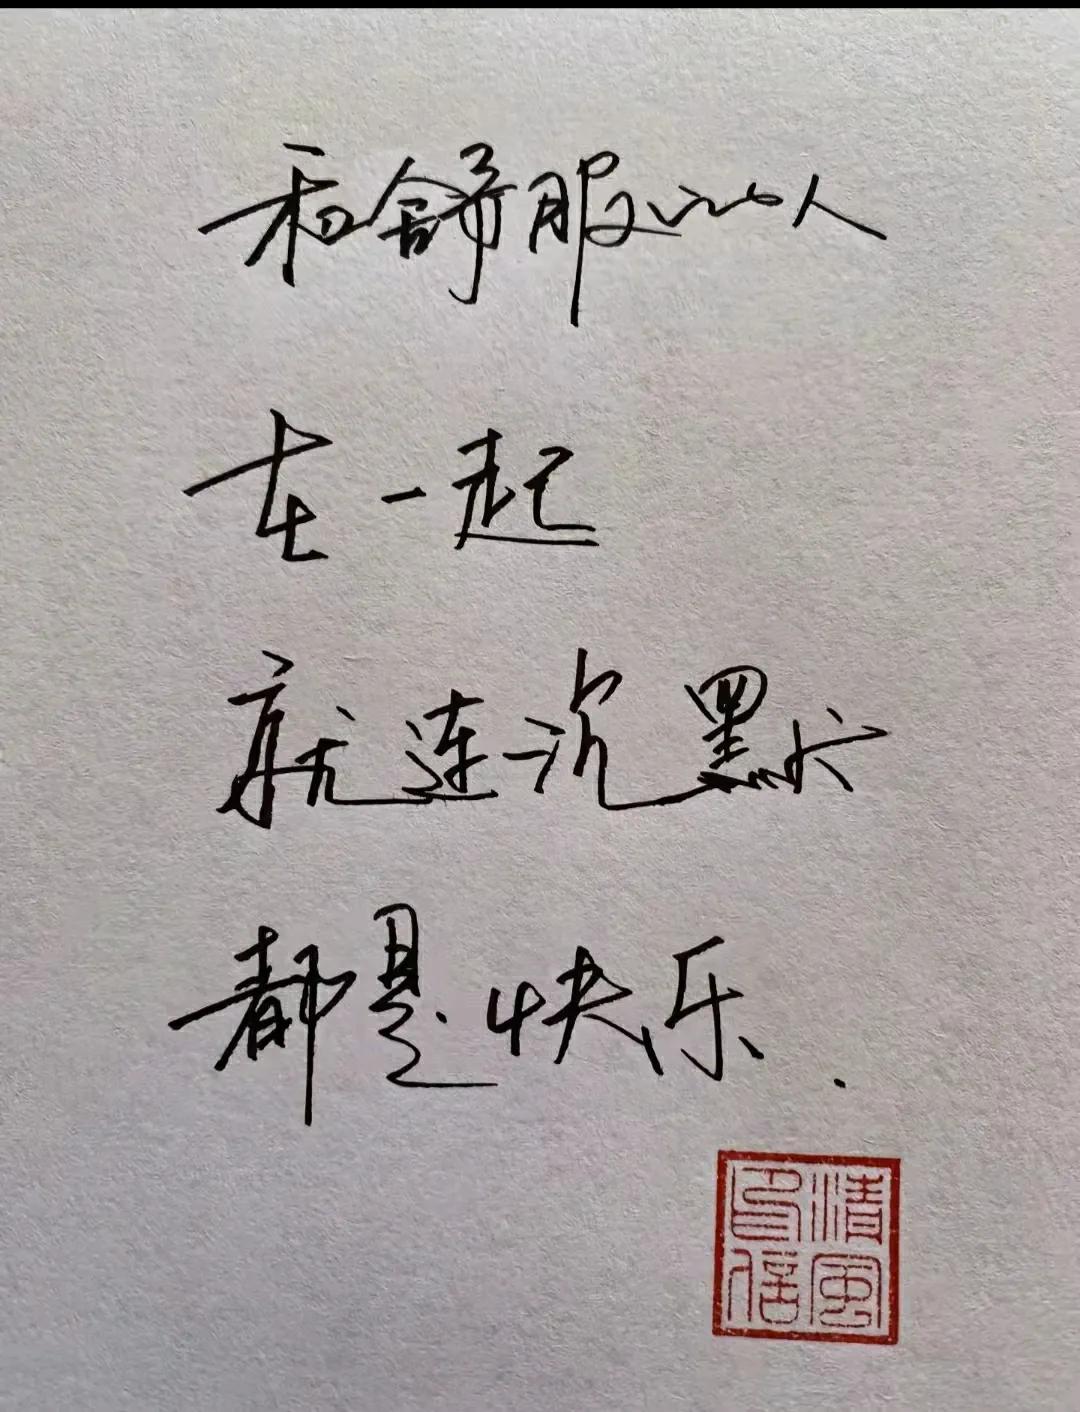 和舒服的人
在一起
就连沉默
都是快乐.
清风
信印